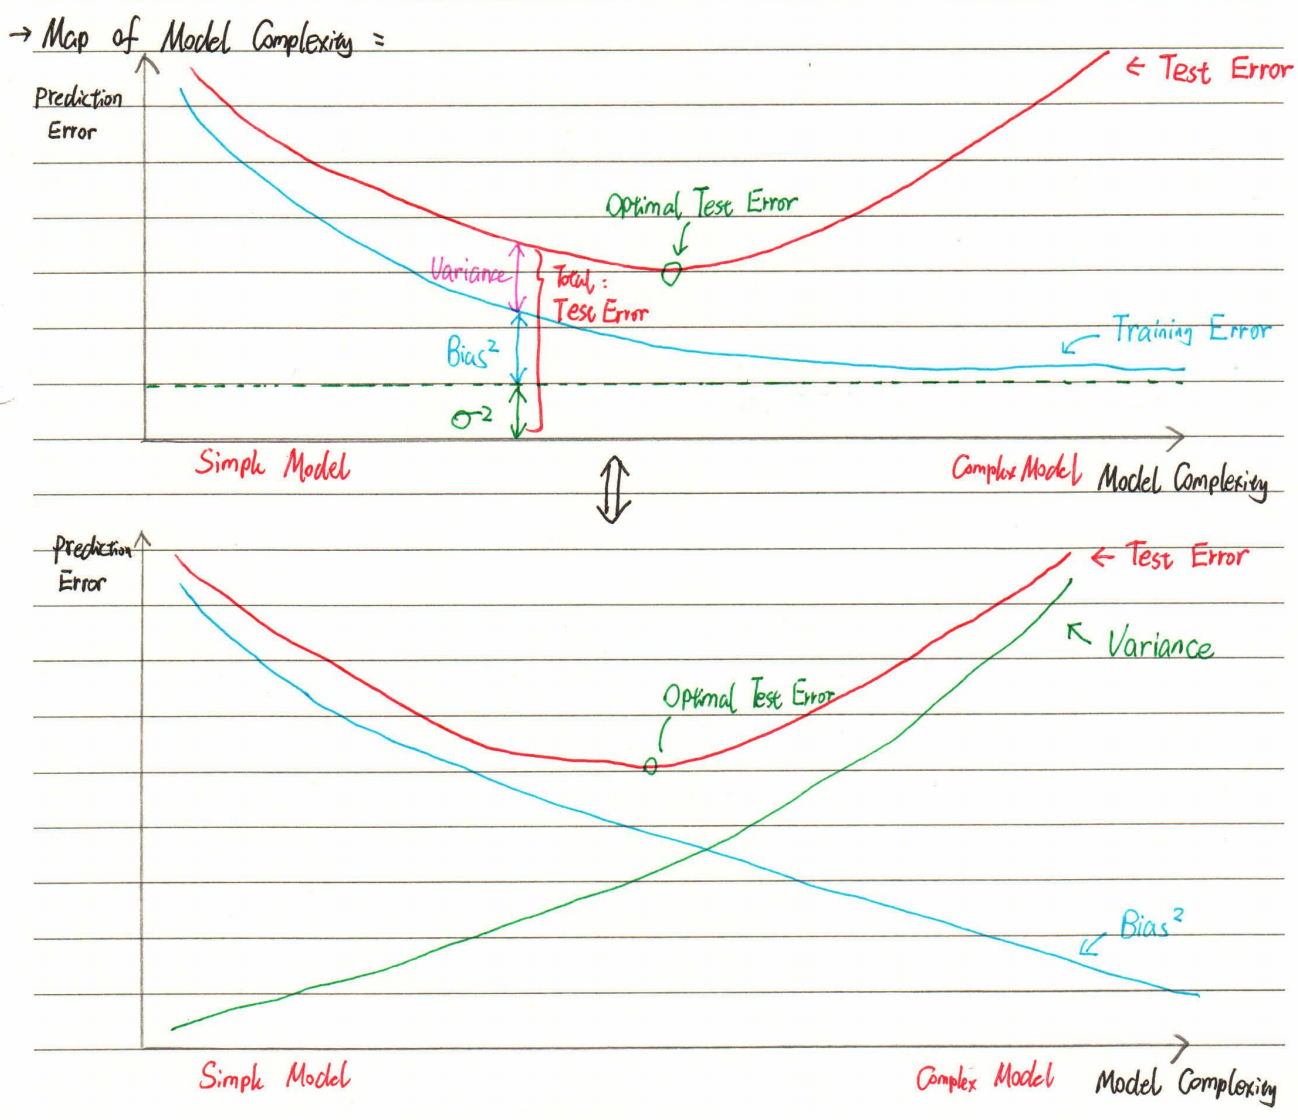 → Map of Model Complexity =
Prediction
Error
← Test Error
Optimal Test Error
Variance
Total :
Test Error
Bias²
Training Error
σ²
Simple Model
Complex Model
Model Complexity
Prediction
Error
← Test Error
Variance
Optimal Test Error
Bias²
Simple Model
Complex Model
Model Complexity